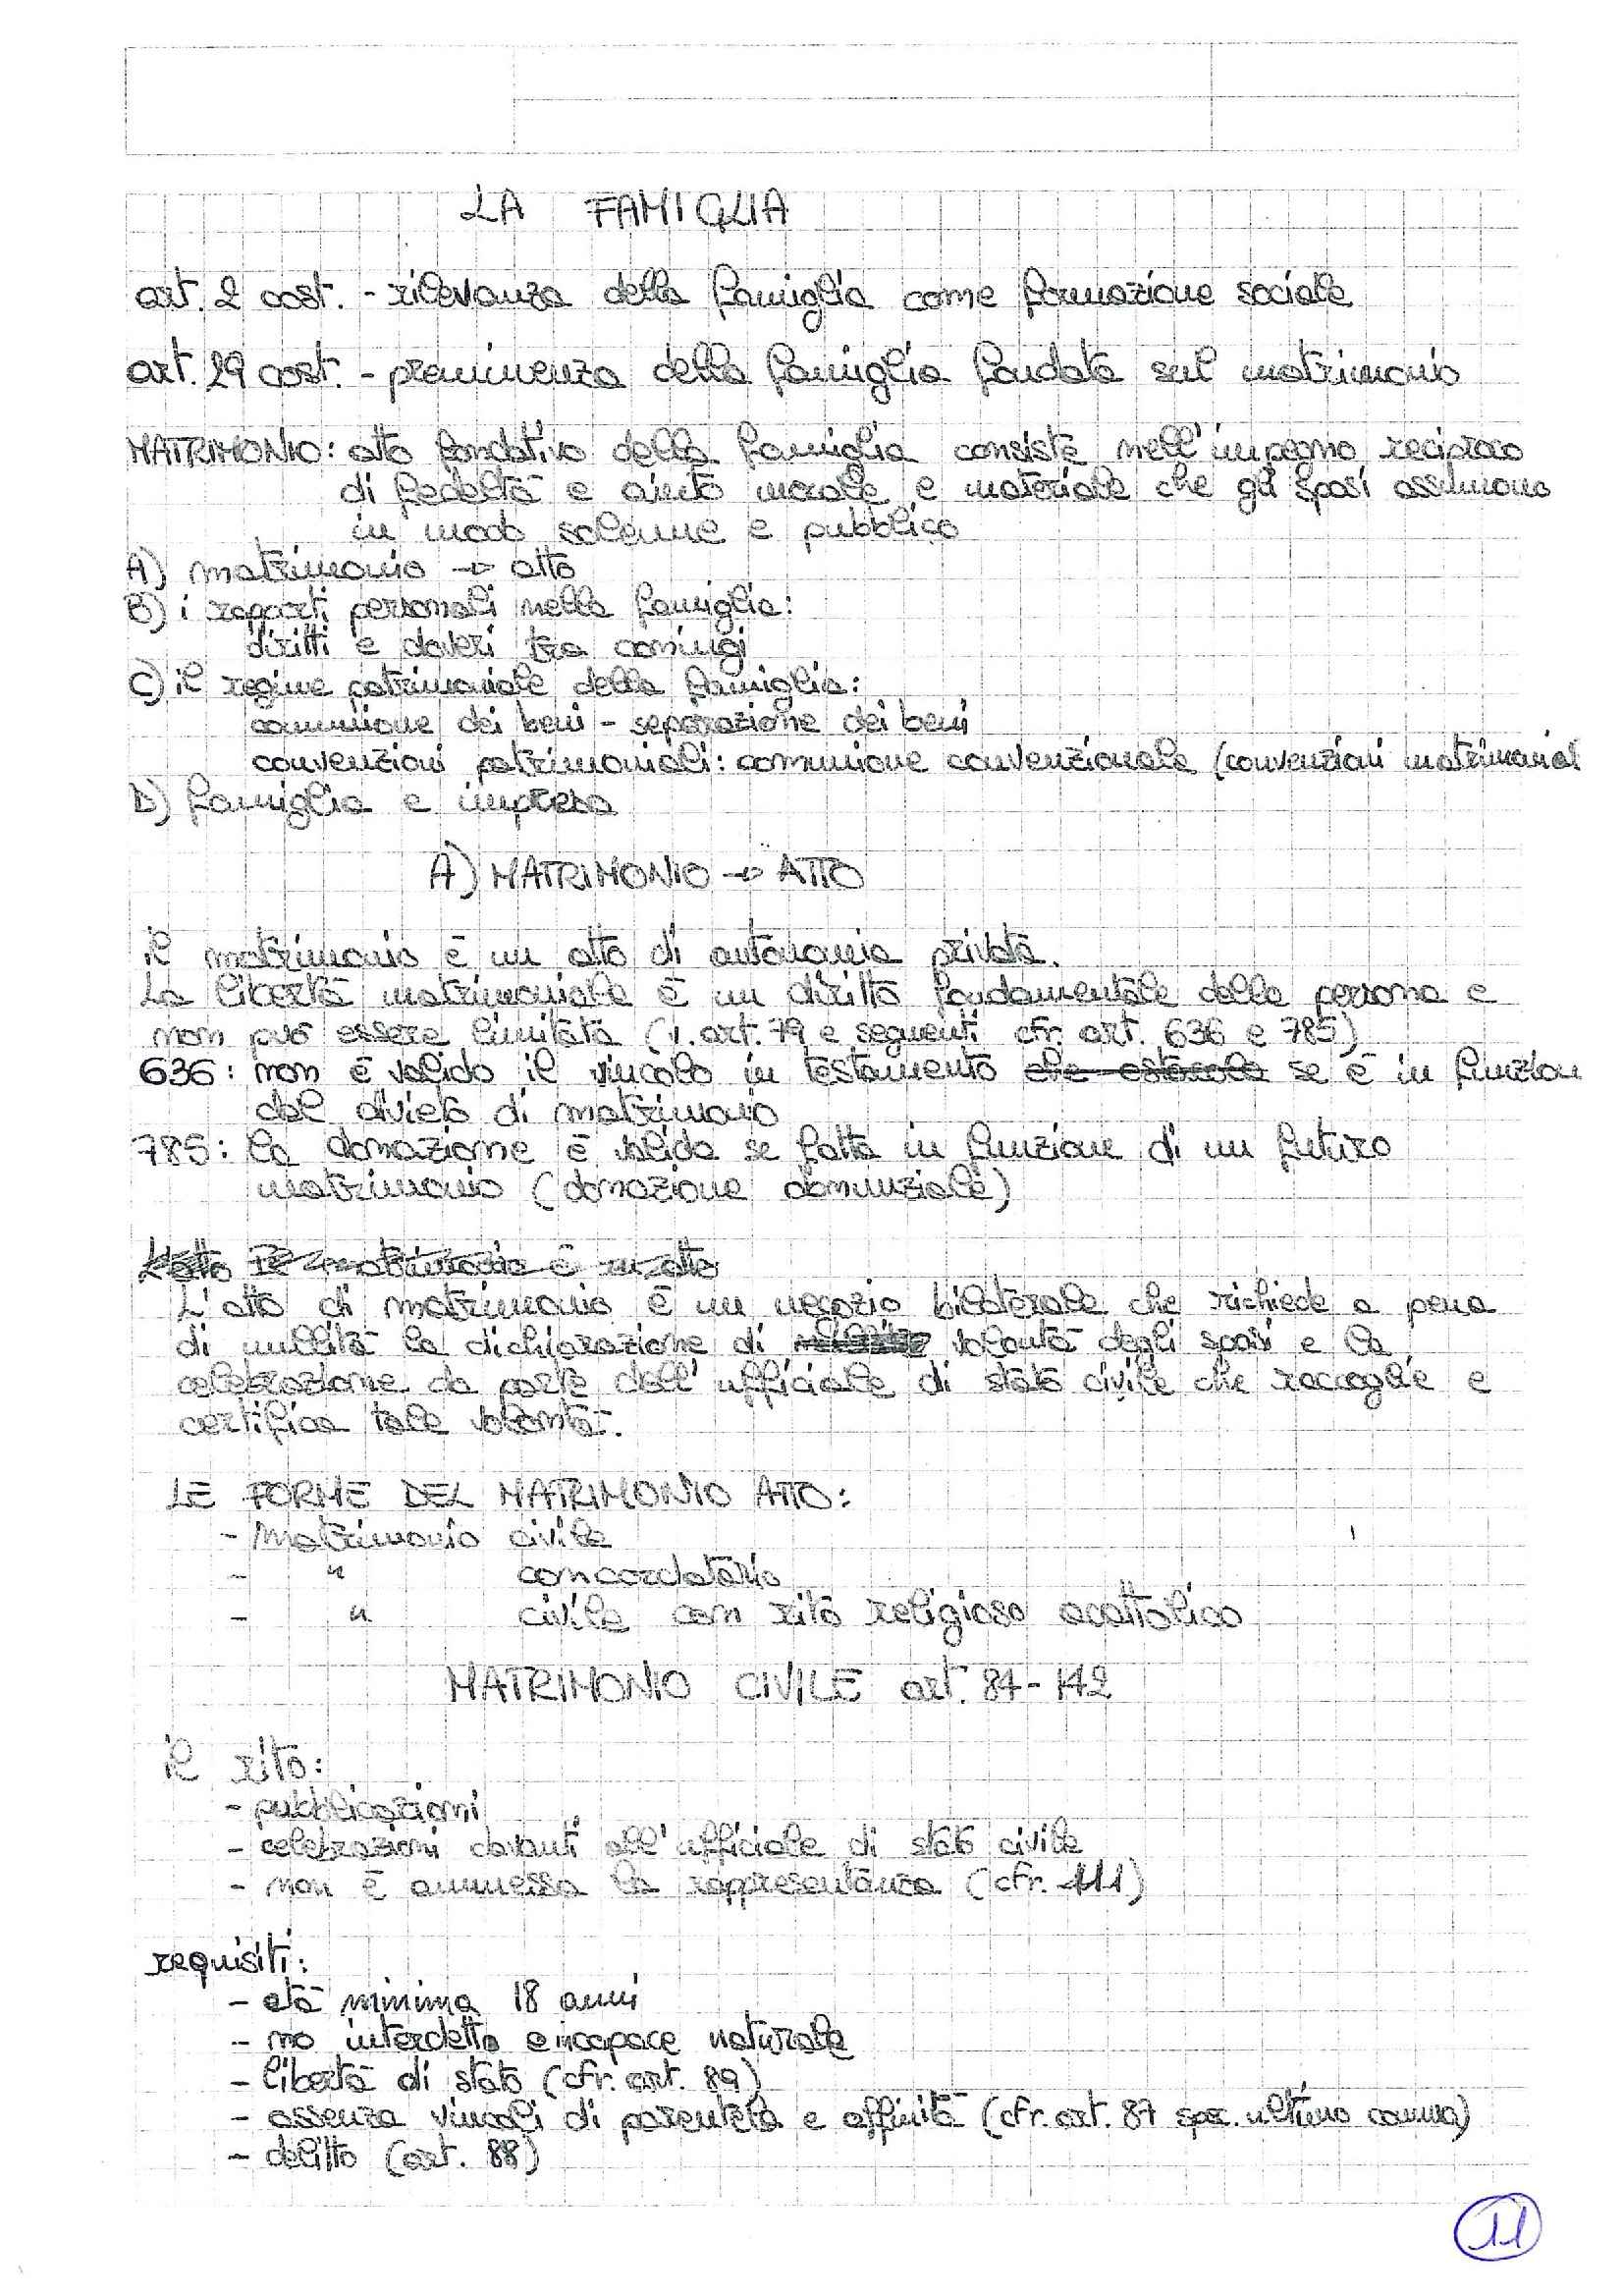 LA FAMIGLIA
art. 2 cost. - rilevanza della famiglia come formazione sociale
art. 29 cost. - preminenza della famiglia fondata sul matrimonio
MATRIMONIO: atto fondativo della famiglia consiste nell'impegno reciproco
di fedeltà e aiuto morale e materiale che gli sposi assumono
in modo solenne e pubblico
A) matrimonio → atto
B) i rapporti personali nella famiglia:
diritti e doveri tra coniugi
C) il regime patrimoniale della famiglia:
comunione dei beni - separazione dei beni
convenzioni patrimoniali: comunione convenzionale (convenzioni matrimonial
D) famiglia e impresa
A) MATRIMONIO → ATTO
il matrimonio è un atto di autonomia privata.
La libertà matrimoniale è un diritto fondamentale della persona e
non può essere limitata (v. art. 79 e seguenti cfr. art. 636 e 785)
636: non è valido il vincolo in testamento se è in funzion
del divieto di matrimonio
785: la donazione è valida se fatta in funzione di un futuro
matrimonio (donazione obnunziale)
L'atto Il matrimonio è un atto
L'atto di matrimonio è un negozio bilaterale che richiede a pena
di nullità la dichiarazione di volontà degli sposi e la
celebrazione da parte dell'ufficiale di stato civile che raccoglie e
certifica tale volontà.
LE FORME DEL MATRIMONIO ATTO:
- Matrimonio civile
- " concordatario
- " civile con rito religioso acattolico
MATRIMONIO CIVILE art. 84-142
il rito:
- pubblicazioni
- celebrazioni davanti all'ufficiale di stato civile
- non è ammessa la rappresentanza (cfr. 111)
requisiti:
- età minima 18 anni
- no interdetto e incapace naturale
- libertà di stato (cfr. art. 89)
- assenza vincoli di parentela e affinità (cfr. art. 87 spec. ultimo comma)
- delitto (art. 88)
11